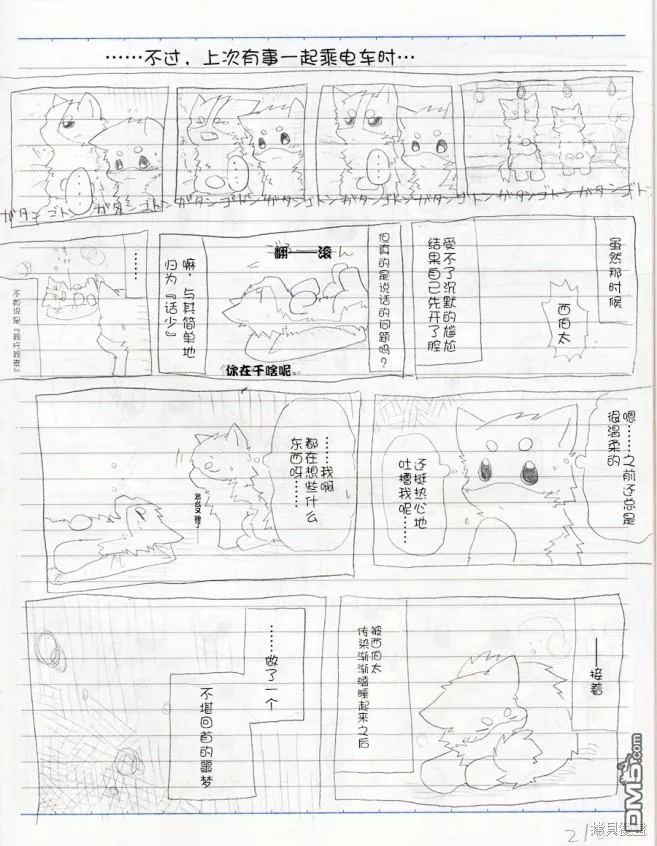 ……不过，上次有事一起乘电车时…
…
…
…
ガタンゴトンガタンゴトンガタンゴトンガタンゴトンガタンゴトンガタンゴトン
虽然那时候
西伯太
受不了沉默的尴尬
结果自己先开了腔
但真的是说话的问题吗？
翻——滚
你在干啥呢。
嘛，与其简单地
归为『话少』
……
不如说是『我行我素』
嗯……之前还总是
很温柔的
还挺热心地
吐槽我呢……
……我啊
都在想些什么
东西呀……
——接着
被西伯太
传染渐渐瞌睡起来之后
……做了一个
不堪回首的噩梦
DM5.com
拷贝漫畫